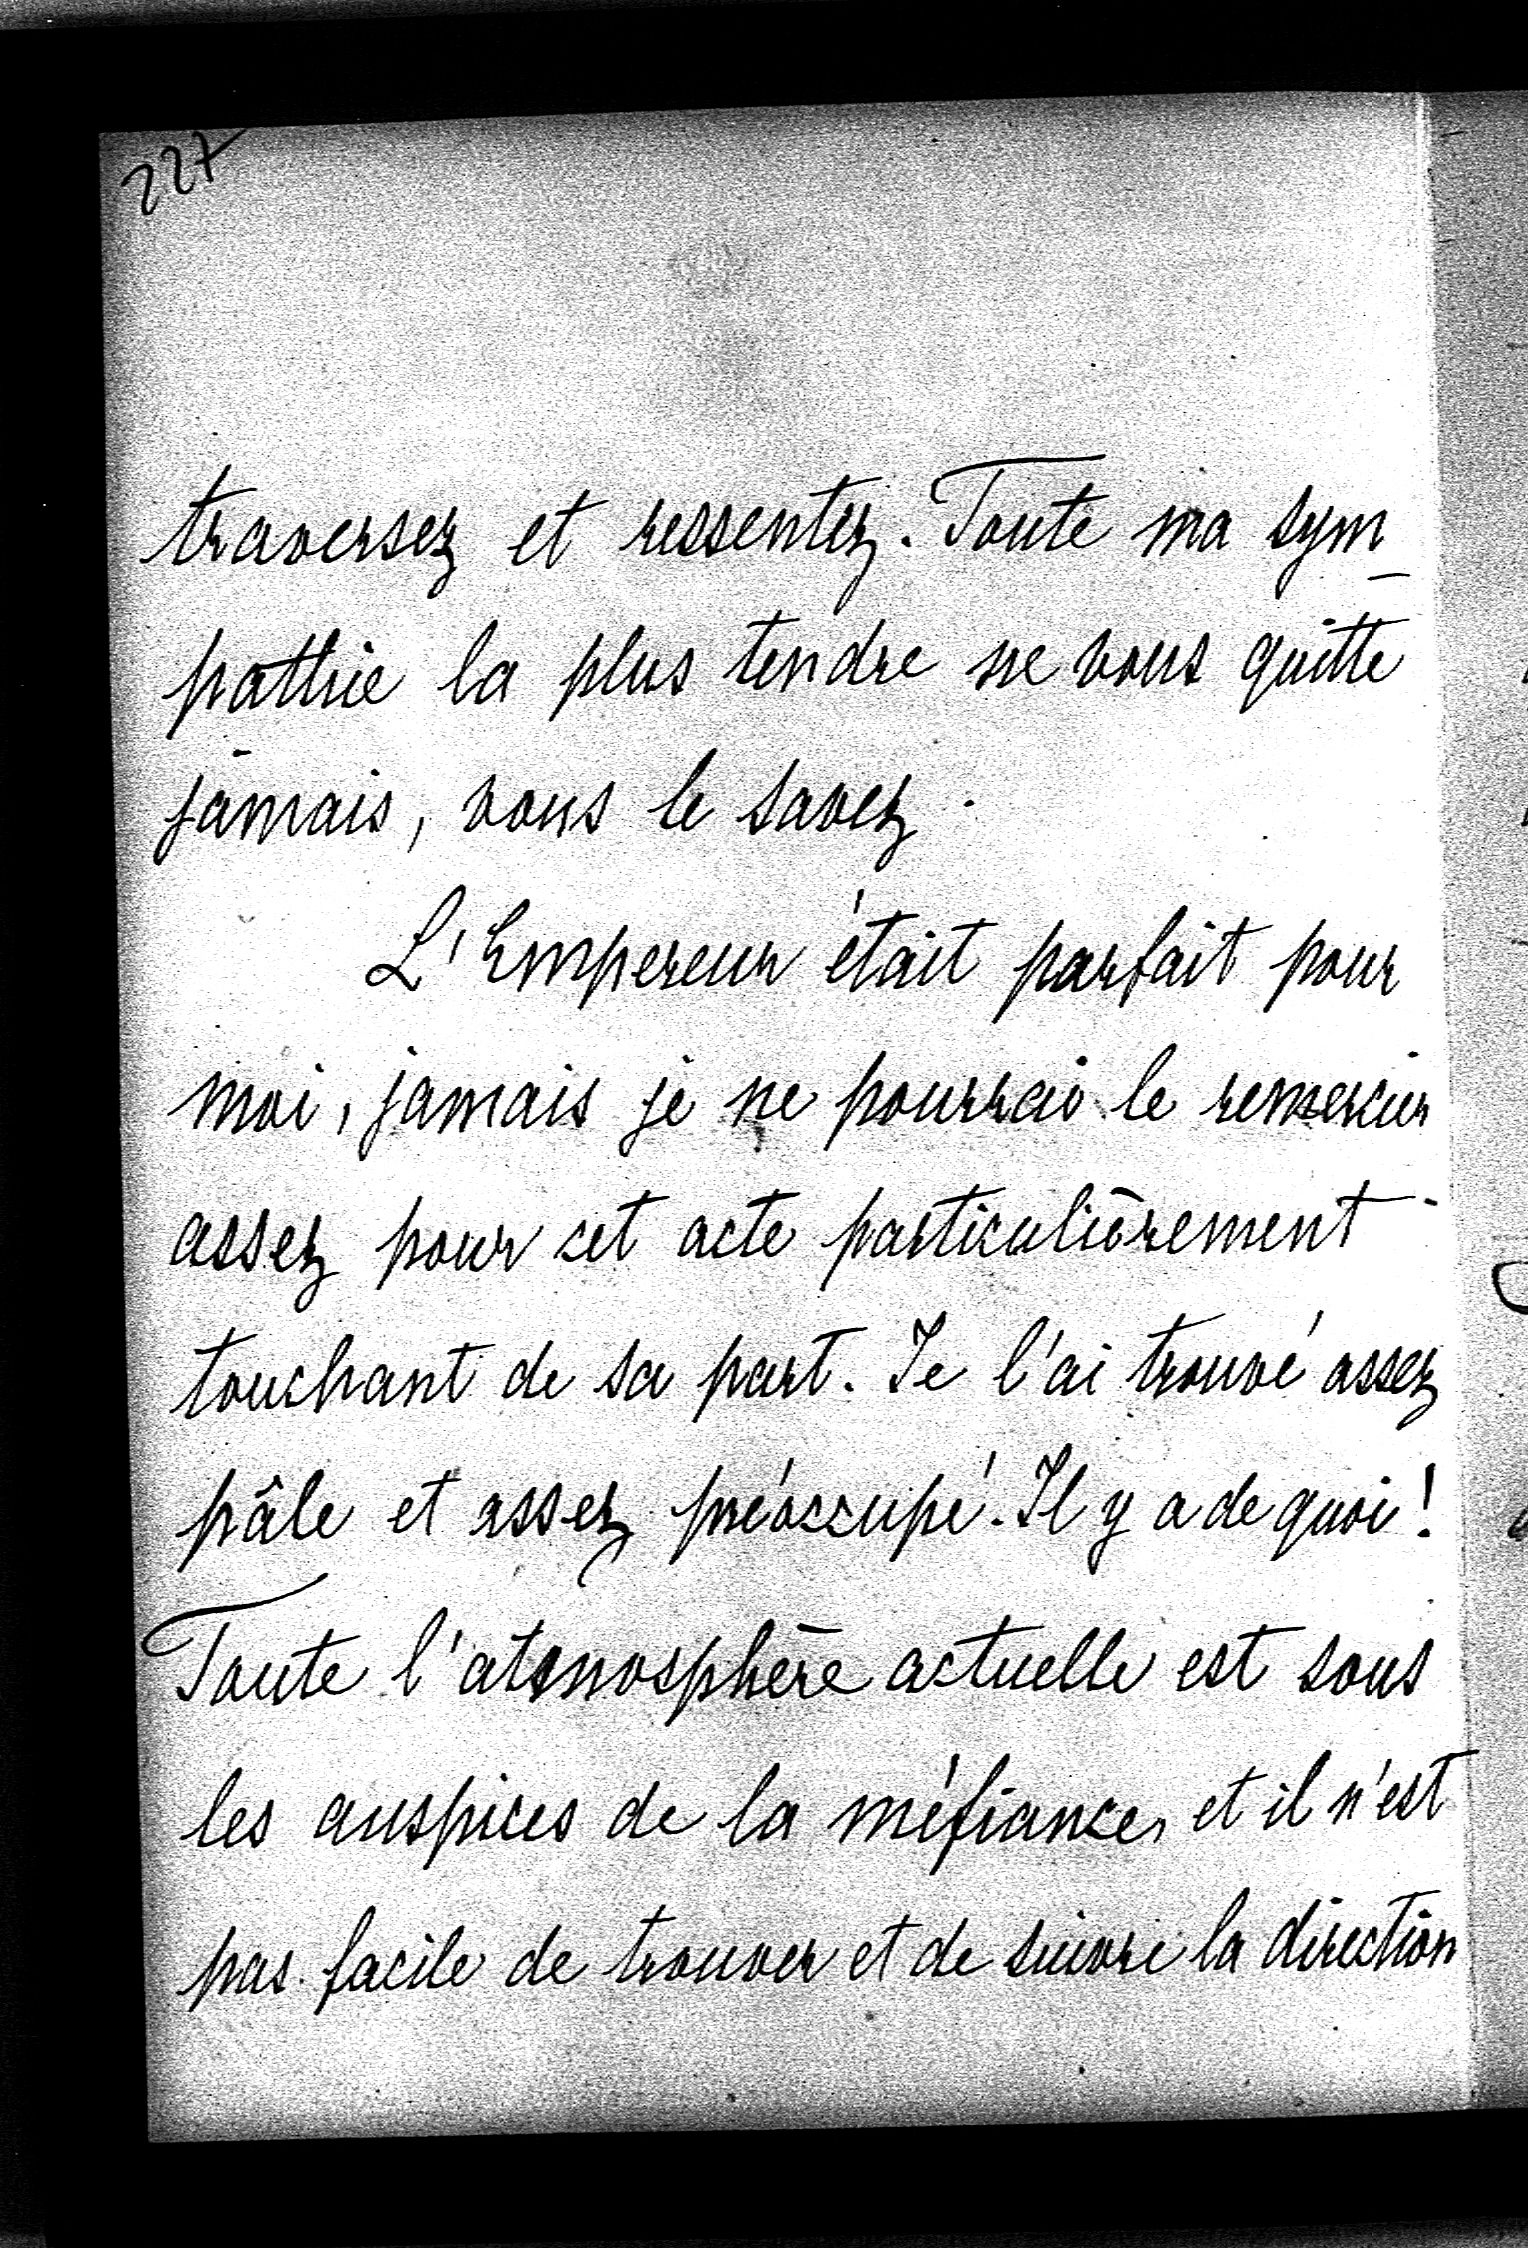 227
traversez et ressentez. Toute ma sym
pathie la plus tendre ne vous quitte
jamais, vous le savez.
L'Empereur était parfait pour
moi, jamais je ne pourrais le remercier
assez pour cet acte particulièrement
touchant de sa part. Je l'ai trouvé assez
pâle et assez préoccupé. Il y a de quoi!
Toute l'atmosphère actuelle est sous
les auspices de la méfiance, et il n'est
pas facile de trouver et de suivre la direction